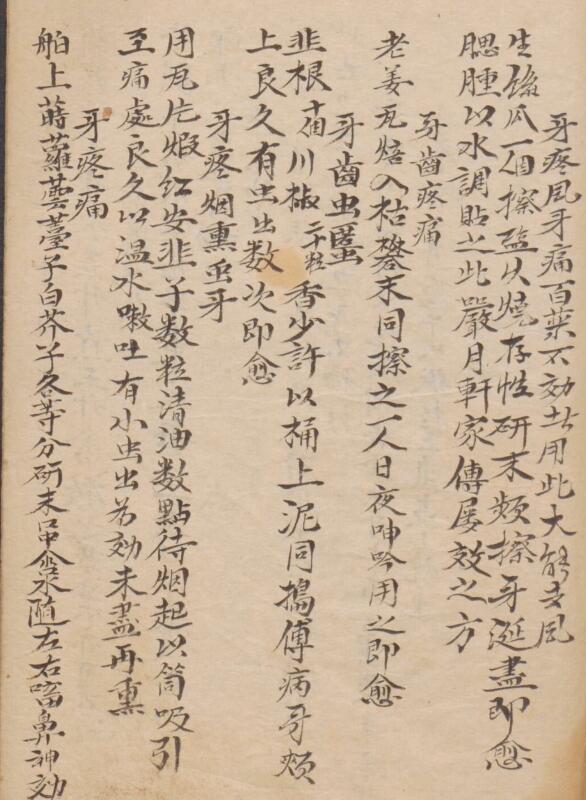 牙疼風牙痛百藥不効者用此大能去風
生絲瓜一個擦盐火燒存性研末頻擦牙涎盡即愈
腮腫以水調貼之此嚴月軒家傳屢效之方
牙齒疼痛
老姜瓦焙入枯礬末同擦之一人日夜呻吟用之即愈
牙齒虫䘌
韭根十個川椒二十粒香少許以桶上泥同搗傅病牙頰
上良久有虫出数次即愈
牙疼烟熏虫牙
用瓦片煆红安韭子数粒清油数點待烟起以筒吸引
至痛處良久以温水嗽吐有小虫出为効未盡再熏
牙疼痛
舶上蒔蘿蕓薹子白芥子各等分研末口中含水随左右㗜鼻神効